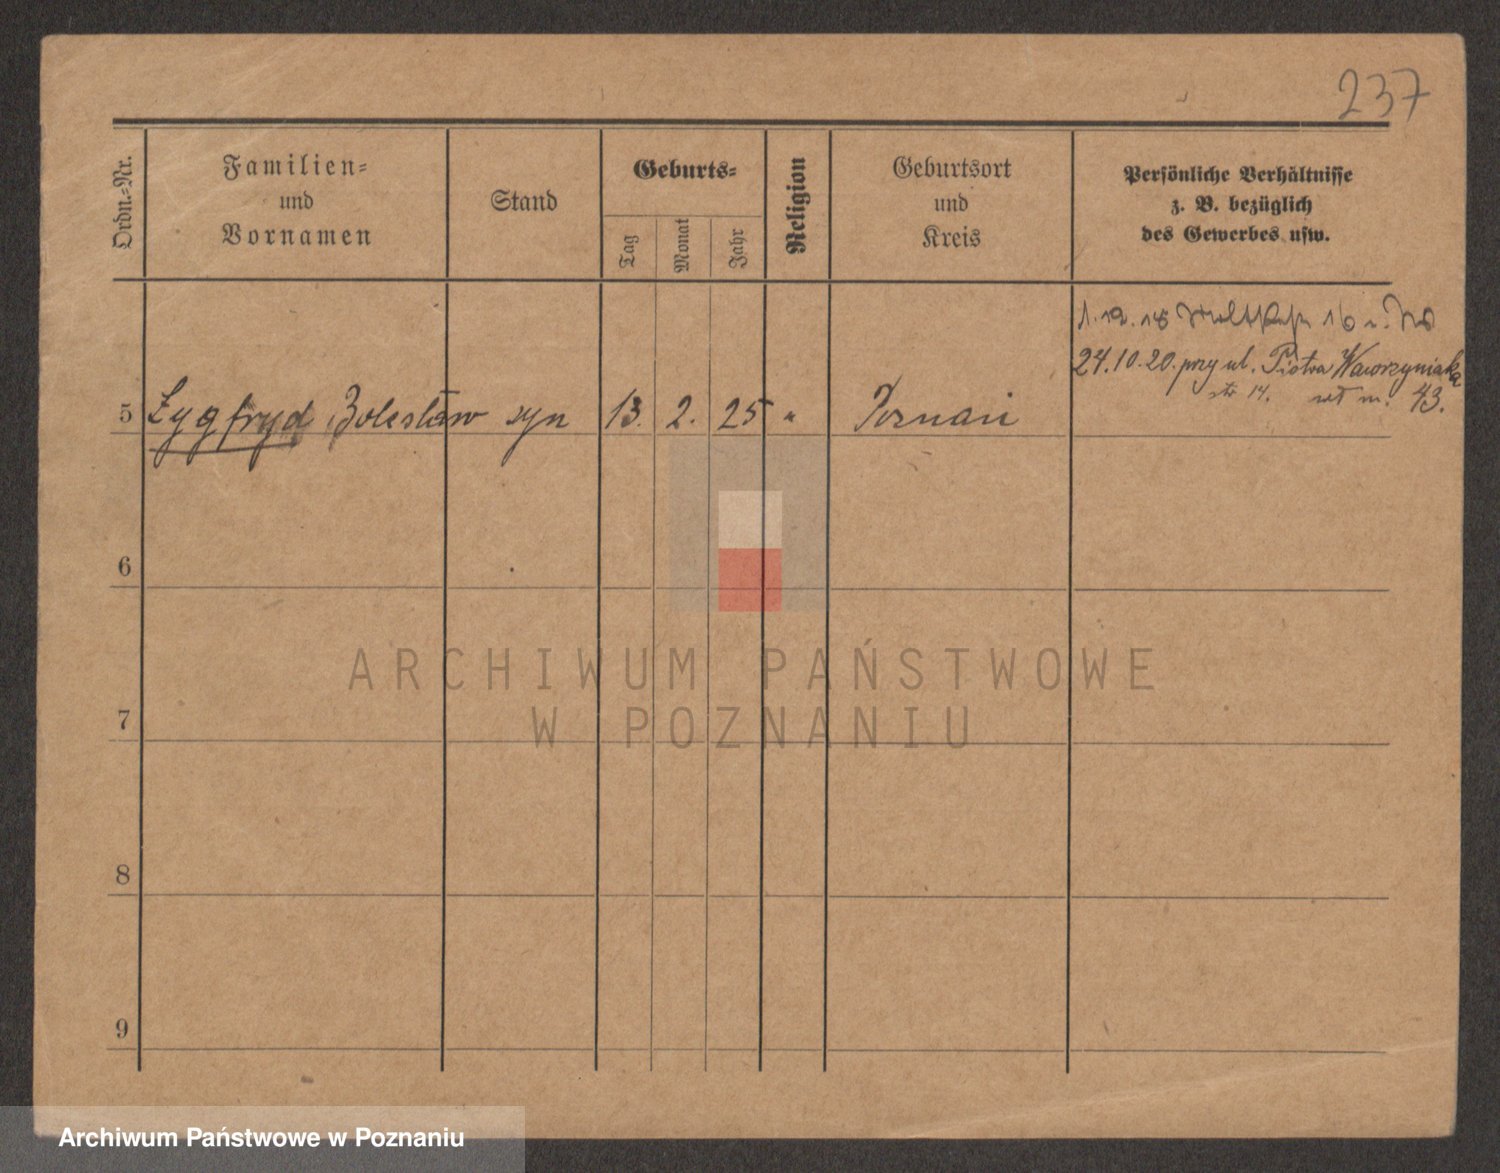 237
Ordn.-Nr.
Familien-
und
Vornamen
Stand
Geburts-
Tag
Monat
Jahr
Religion
Geburtsort
und
Kreis
Persönliche Verhältnisse
z. B. bezüglich
des Gewerbes usw.
24.10.20. przy ul. Piotra Wawrzyniaka
str 14. m. 43.
5 Zygfryd Bolesław syn 13. 2. 25 " Poznań
6
ARCHIWUM PAŃSTWOWE
W POZNANIU
7
8
9
Archiwum Państwowe w Poznaniu